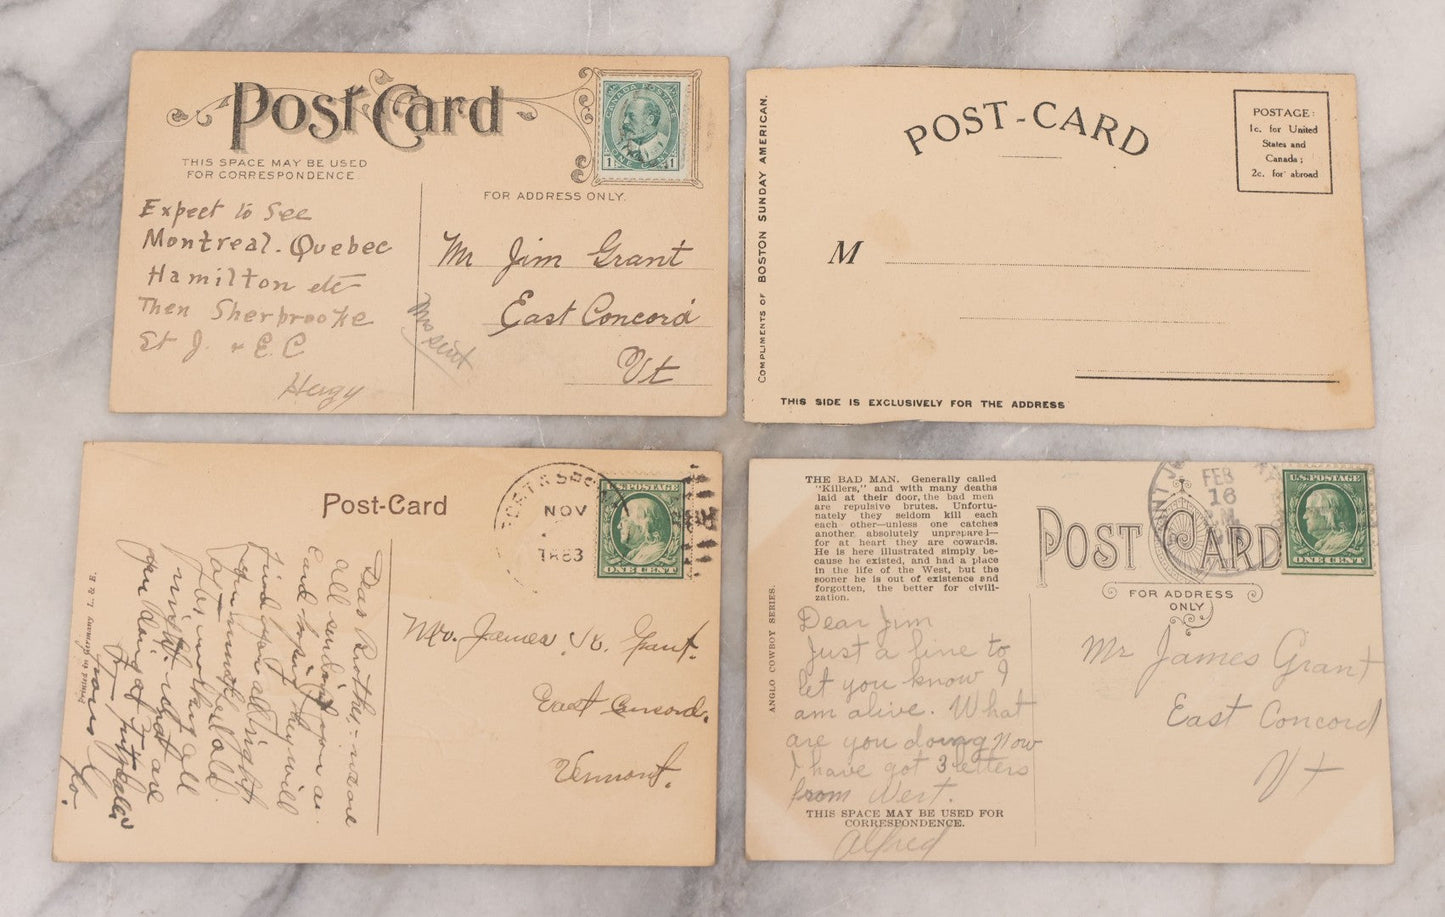 Post Card
THIS SPACE MAY BE USED
FOR CORRESPONDENCE
CANADA POSTAGE
1 ONE CENT 1
FOR ADDRESS ONLY.
Expect to See
Montreal. Quebec
Hamilton etc
Then Sherbrooke
St J. & E. C
Mr Jim Grant
East Concord
Vt
Missent
COMPLIMENTS OF BOSTON SUNDAY AMERICAN.
POST-CARD
POSTAGE:
1c. for United
States and
Canada;
2c. for abroad
M
THIS SIDE IS EXCLUSIVELY FOR THE ADDRESS
Post-Card
NOV
U.S. POSTAGE
ONE CENT
Printed in Germany L. & E.
Dear Brother,-
all
Card hoping they will
find you all right
Mr. James K. Grant.
East Concord.
Vermont.
THE BAD MAN. Generally called
"Killers," and with many deaths
laid at their door, the bad men
are repulsive brutes. Unfortu-
nately they seldom kill each
each other—unless one catches
another absolutely unprepared—
for at heart they are cowards.
He is here illustrated simply be-
cause he existed, and had a place
in the life of the West, but the
sooner he is out of existence and
forgotten, the better for civili-
zation.
ANGLO COWBOY SERIES.
Dear Jim
Just a line to
let you know I
am alive. What
are you doing Now
I have got 3 letters
from West.
THIS SPACE MAY BE USED FOR
CORRESPONDENCE.
Alfred
POST CARD
FEB
16
U.S. POSTAGE
ONE CENT
FOR ADDRESS
ONLY
Mr James Grant
East Concord
Vt